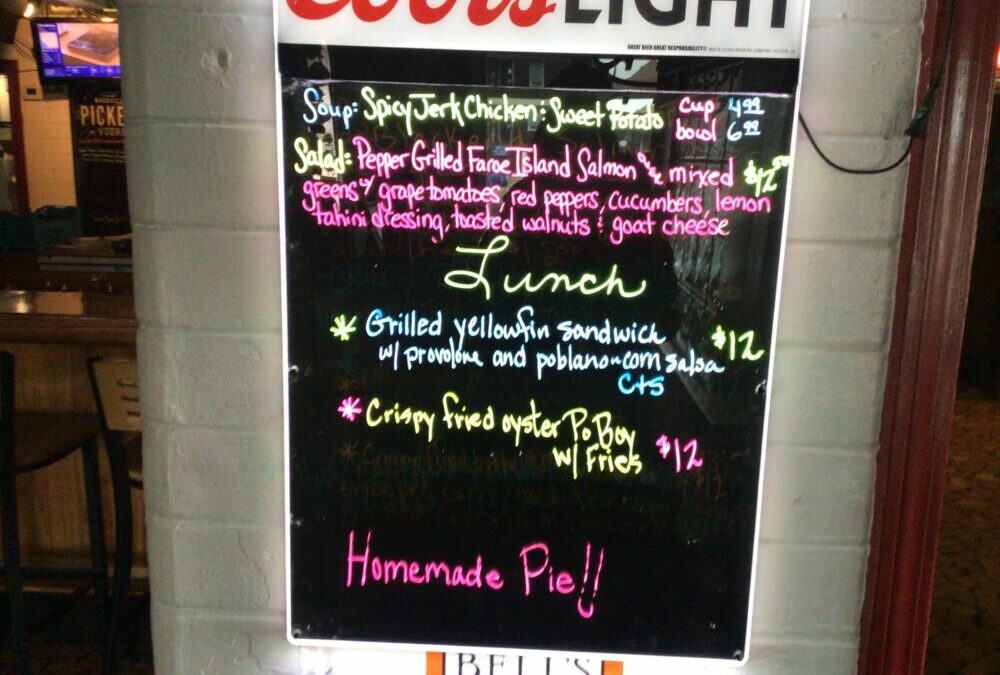 Coors LIGHT
GREAT BEER GREAT RESPONSIBILITY®
PICKE
VODKA
Soup: Spicy Jerk Chicken: Sweet Potato Cup 4.99
bowl 6.99
Salad: Pepper Grilled Faroe Island Salmon over mixed $12.50
greens w/ grape tomatoes, red peppers, cucumbers, lemon
tahini dressing, toasted walnuts & goat cheese
Lunch
* Grilled yellowfin sandwich $12
w/ provolone and poblano-corn salsa
CTS
* Crispy fried oyster Po Boy
w/ Fries $12
Homemade Pie!!
BELL'S